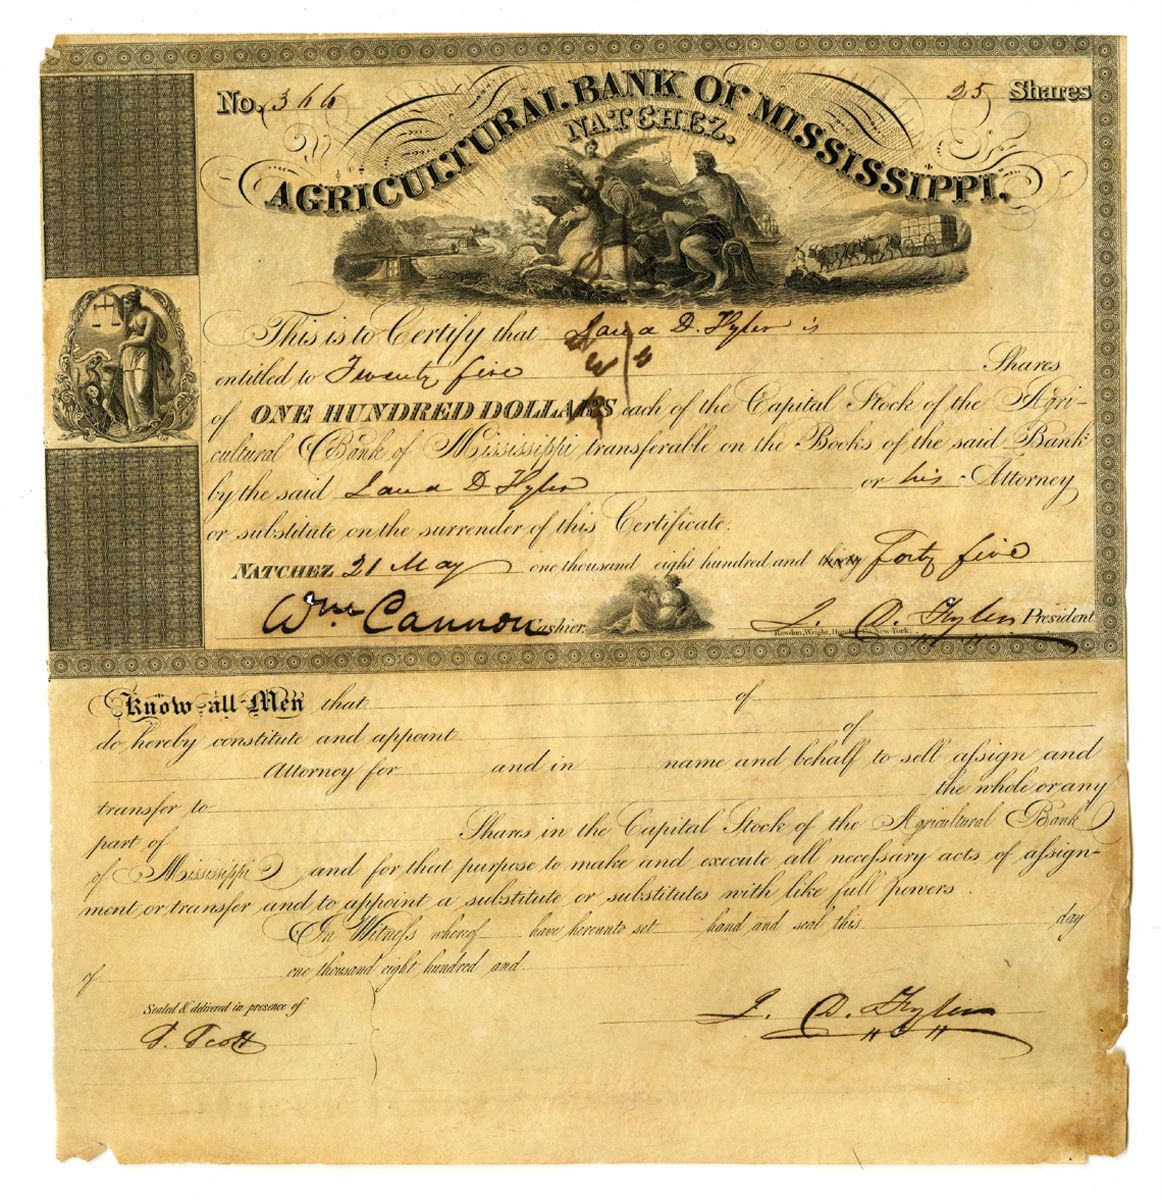 No. 366
25 Shares
AGRICULTURAL BANK OF MISSISSIPPI,
NATCHEZ.
This is to Certify that D. is
entitled to Twenty five Shares
of ONE HUNDRED DOLLARS each of the Capital Stock of the Agri-
cultural Bank of Mississippi transferable on the Books of the said Bank
by the said D or his Attorney
or substitute on the surrender of this Certificate.
NATCHEZ 21 May one thousand eight hundred and thirty Forty five
Wm. Cannon Cashier. D. President
Rawdon, Wright, New-York.
Know all Men that of
do hereby constitute and appoint of
Attorney for and in name and behalf to sell assign and
transfer to the whole or any
part of Shares in the Capital Stock of the Agricultural Bank
of Mississippi and for that purpose to make and execute all necessary acts of assign-
ment or transfer and to appoint a substitute or substitutes with like full powers.
In Witness whereof have hereunto set hand and seal this day
of one thousand eight hundred and
Sealed & delivered in presence of
Scott D.